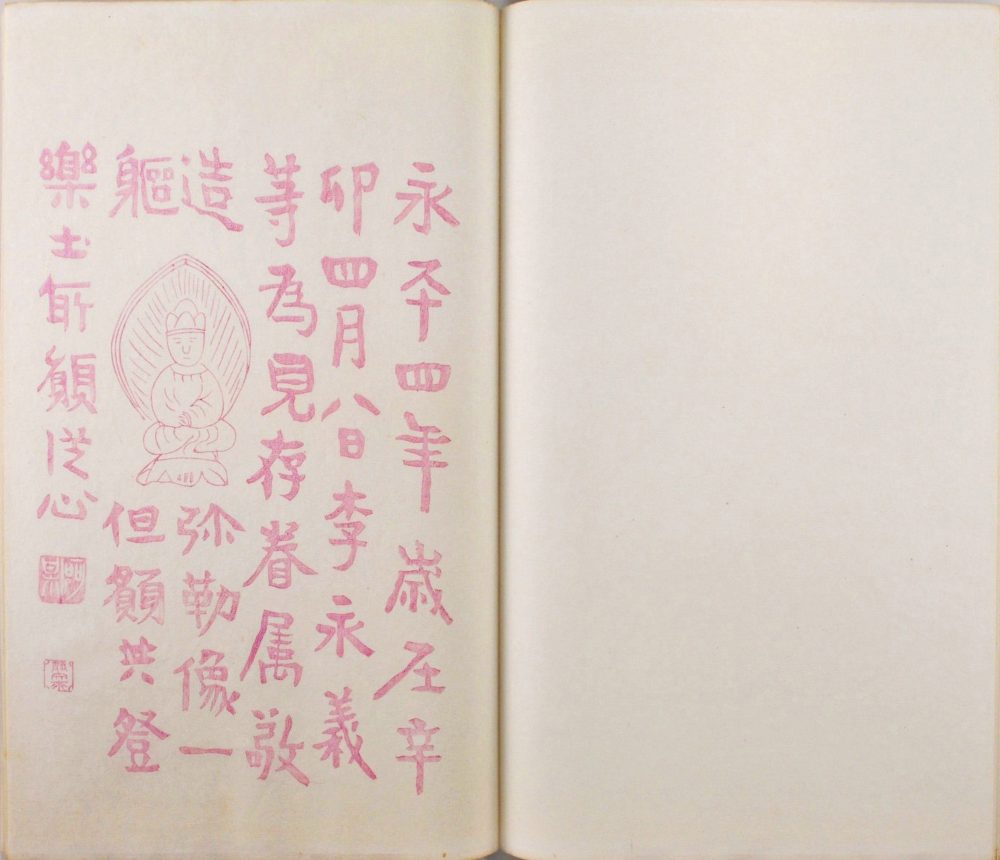 永平四年歲在辛
卯四月八日李永義
等為見存眷属敬
造弥勒像一
軀但願共登
樂土所願從心